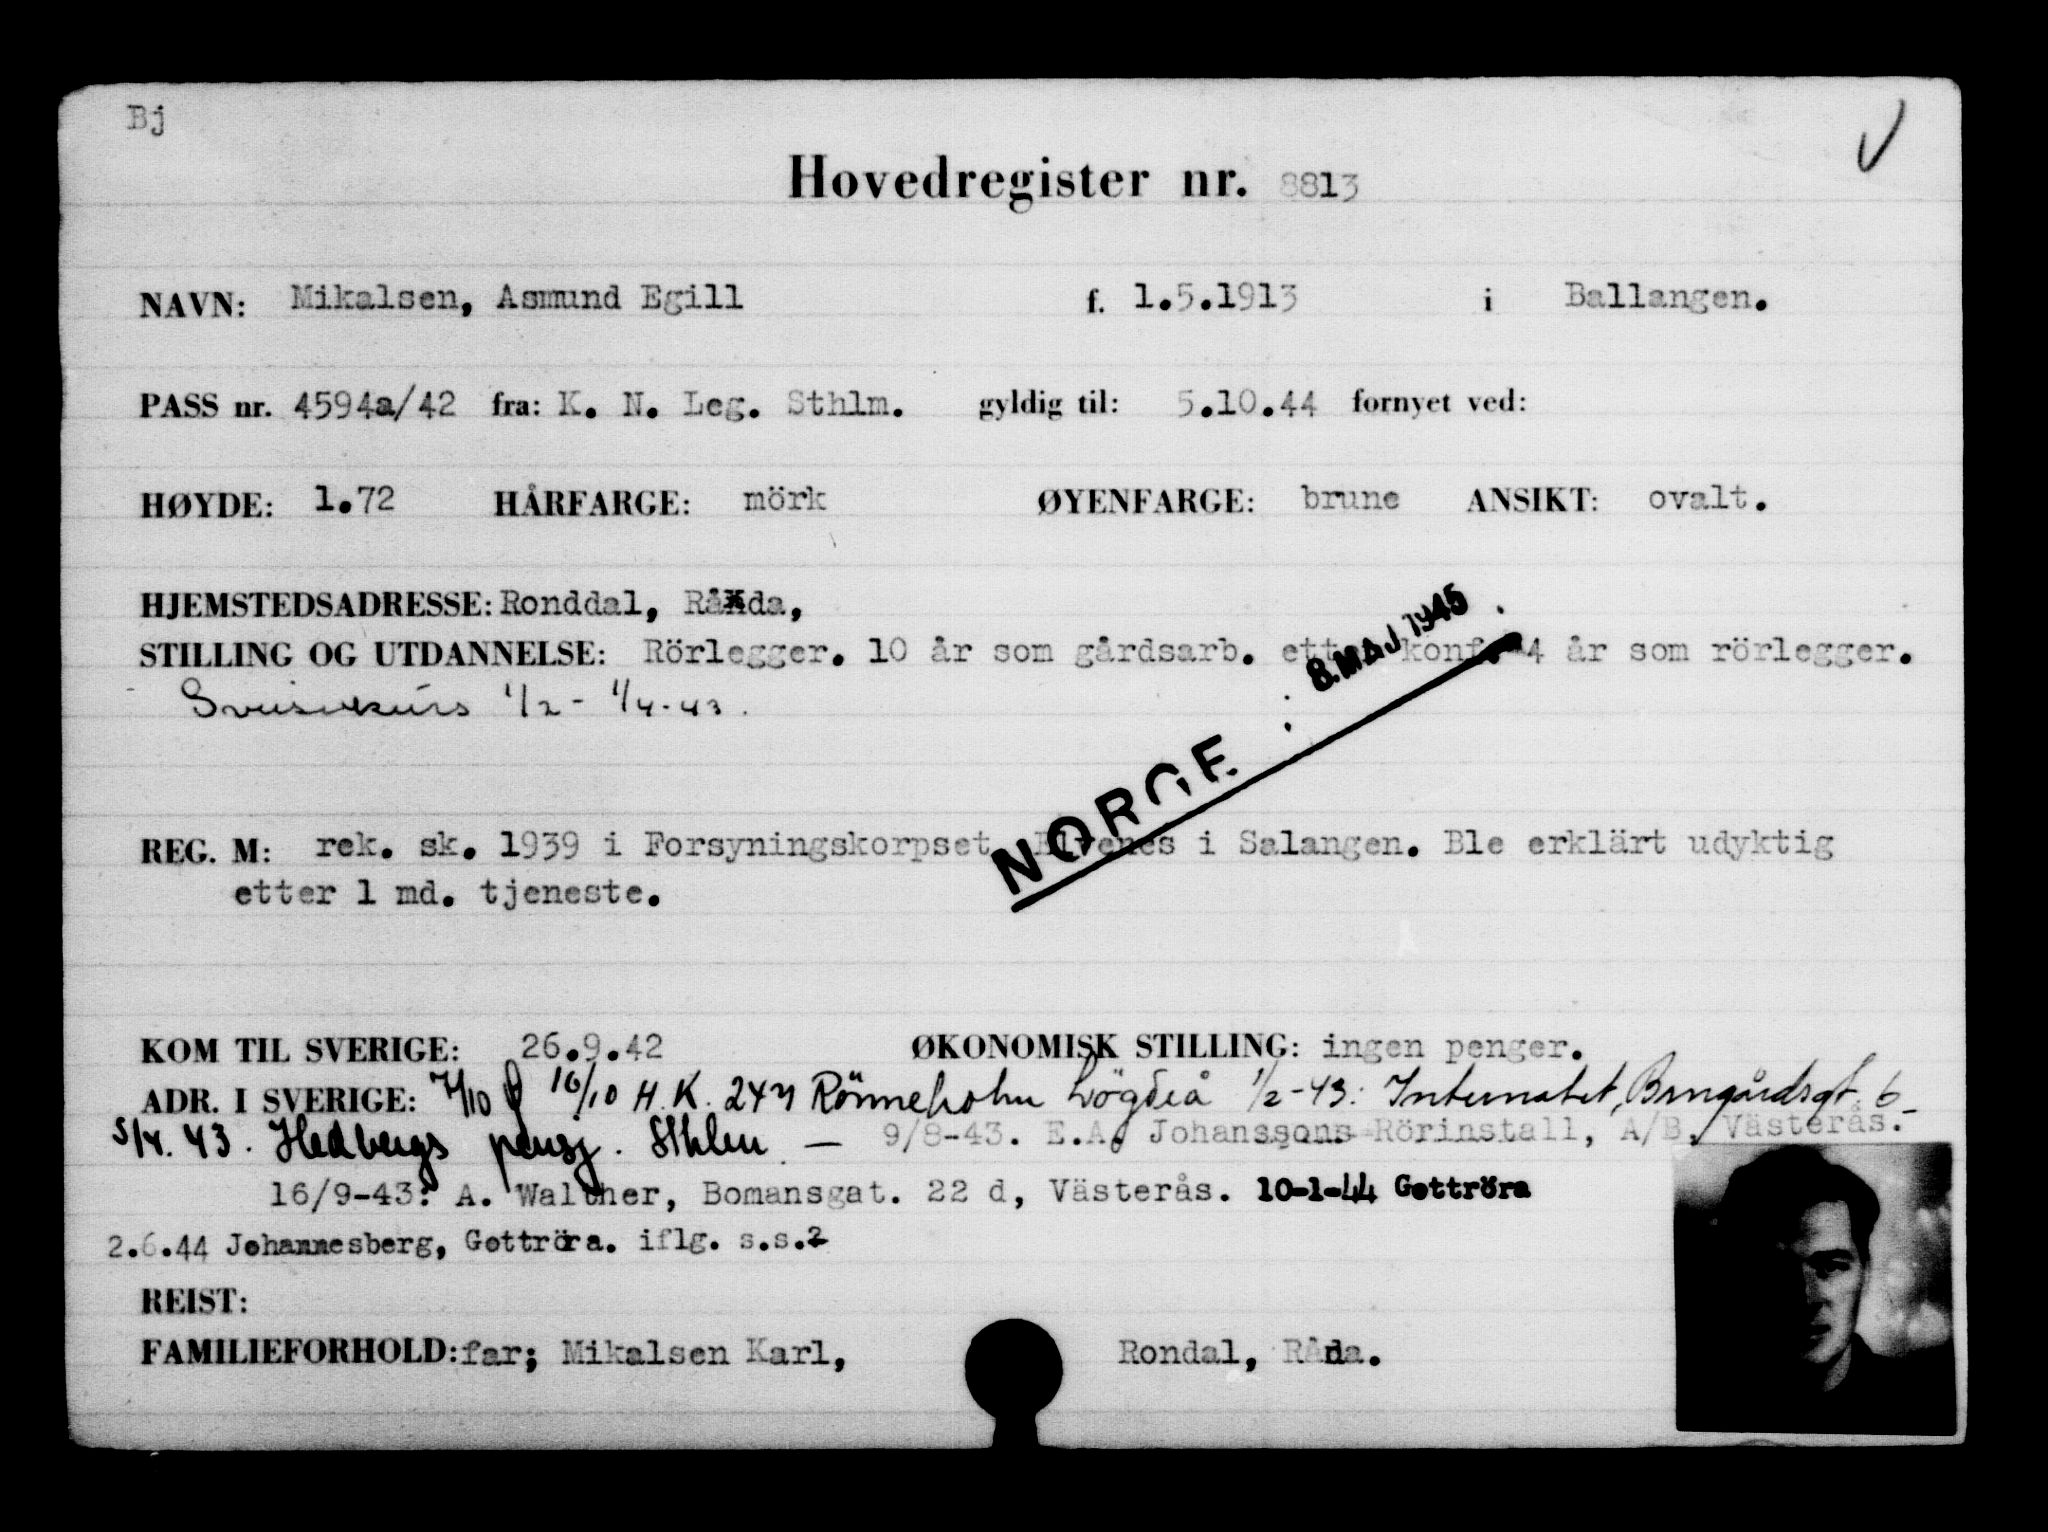 Bj
Hovedregister nr. 8813
NAVN: Mikalsen, Asmund Egill f. 1.5.1913 i Ballangen.
PASS nr. 4594a/42 fra: K. N. Leg. Sthlm. gyldig til: 5.10.44 fornyet ved:
HØYDE: 1.72 HÅRFARGE: mörk ØYENFARGE: brune ANSIKT: ovalt.
HJEMSTEDSADRESSE: Ronddal, Rånda,
STILLING OG UTDANNELSE: Rörlegger. 10 år som gårdsarb. etter konf. 4 år som rörlegger.
8. MAJ 1945
Sveisekurs 1/2 - 1/4-43.
NORGE
REG. M: rek. sk. 1939 i Forsyningskorpset, Elvenes i Salangen. Ble erklärt udyktig
etter 1 md. tjeneste.
KOM TIL SVERIGE: 26.9.42 ØKONOMISK STILLING: ingen penger.
ADR. I SVERIGE: 7/10 16/10 H.K. Rönneholm Lögdeå 1/2-43: Internatet, 6
5/4. 43. Hedbergs pensj. Sthlm. — 9/8-43. E.A. Johanssons Rörinstall, A/B, Västerås.
16/9-43: A. Walther, Bomansgat. 22 d, Västerås. 10-1-44 Gottröra
2.6.44 Johannesberg, Gottröra. iflg. s.s.2
REIST:
FAMILIEFORHOLD: far; Mikalsen Karl, Rondal, Råna.